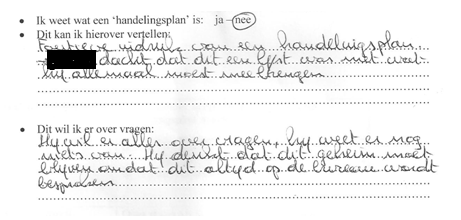 • Ik weet wat een 'handelingsplan' is: ja – nee
• Dit kan ik hierover vertellen:
indruk van een handelingsplan
dacht dat dit een lyst was met wat
hy allemaal moest meebrengen
• Dit wil ik er over vragen:
Hy wil er alles over vragen, hy weet er nog
niets van. Hy denkt dat dit geheim moet
blyven omdat dit altyd op de bureau wordt
besproken